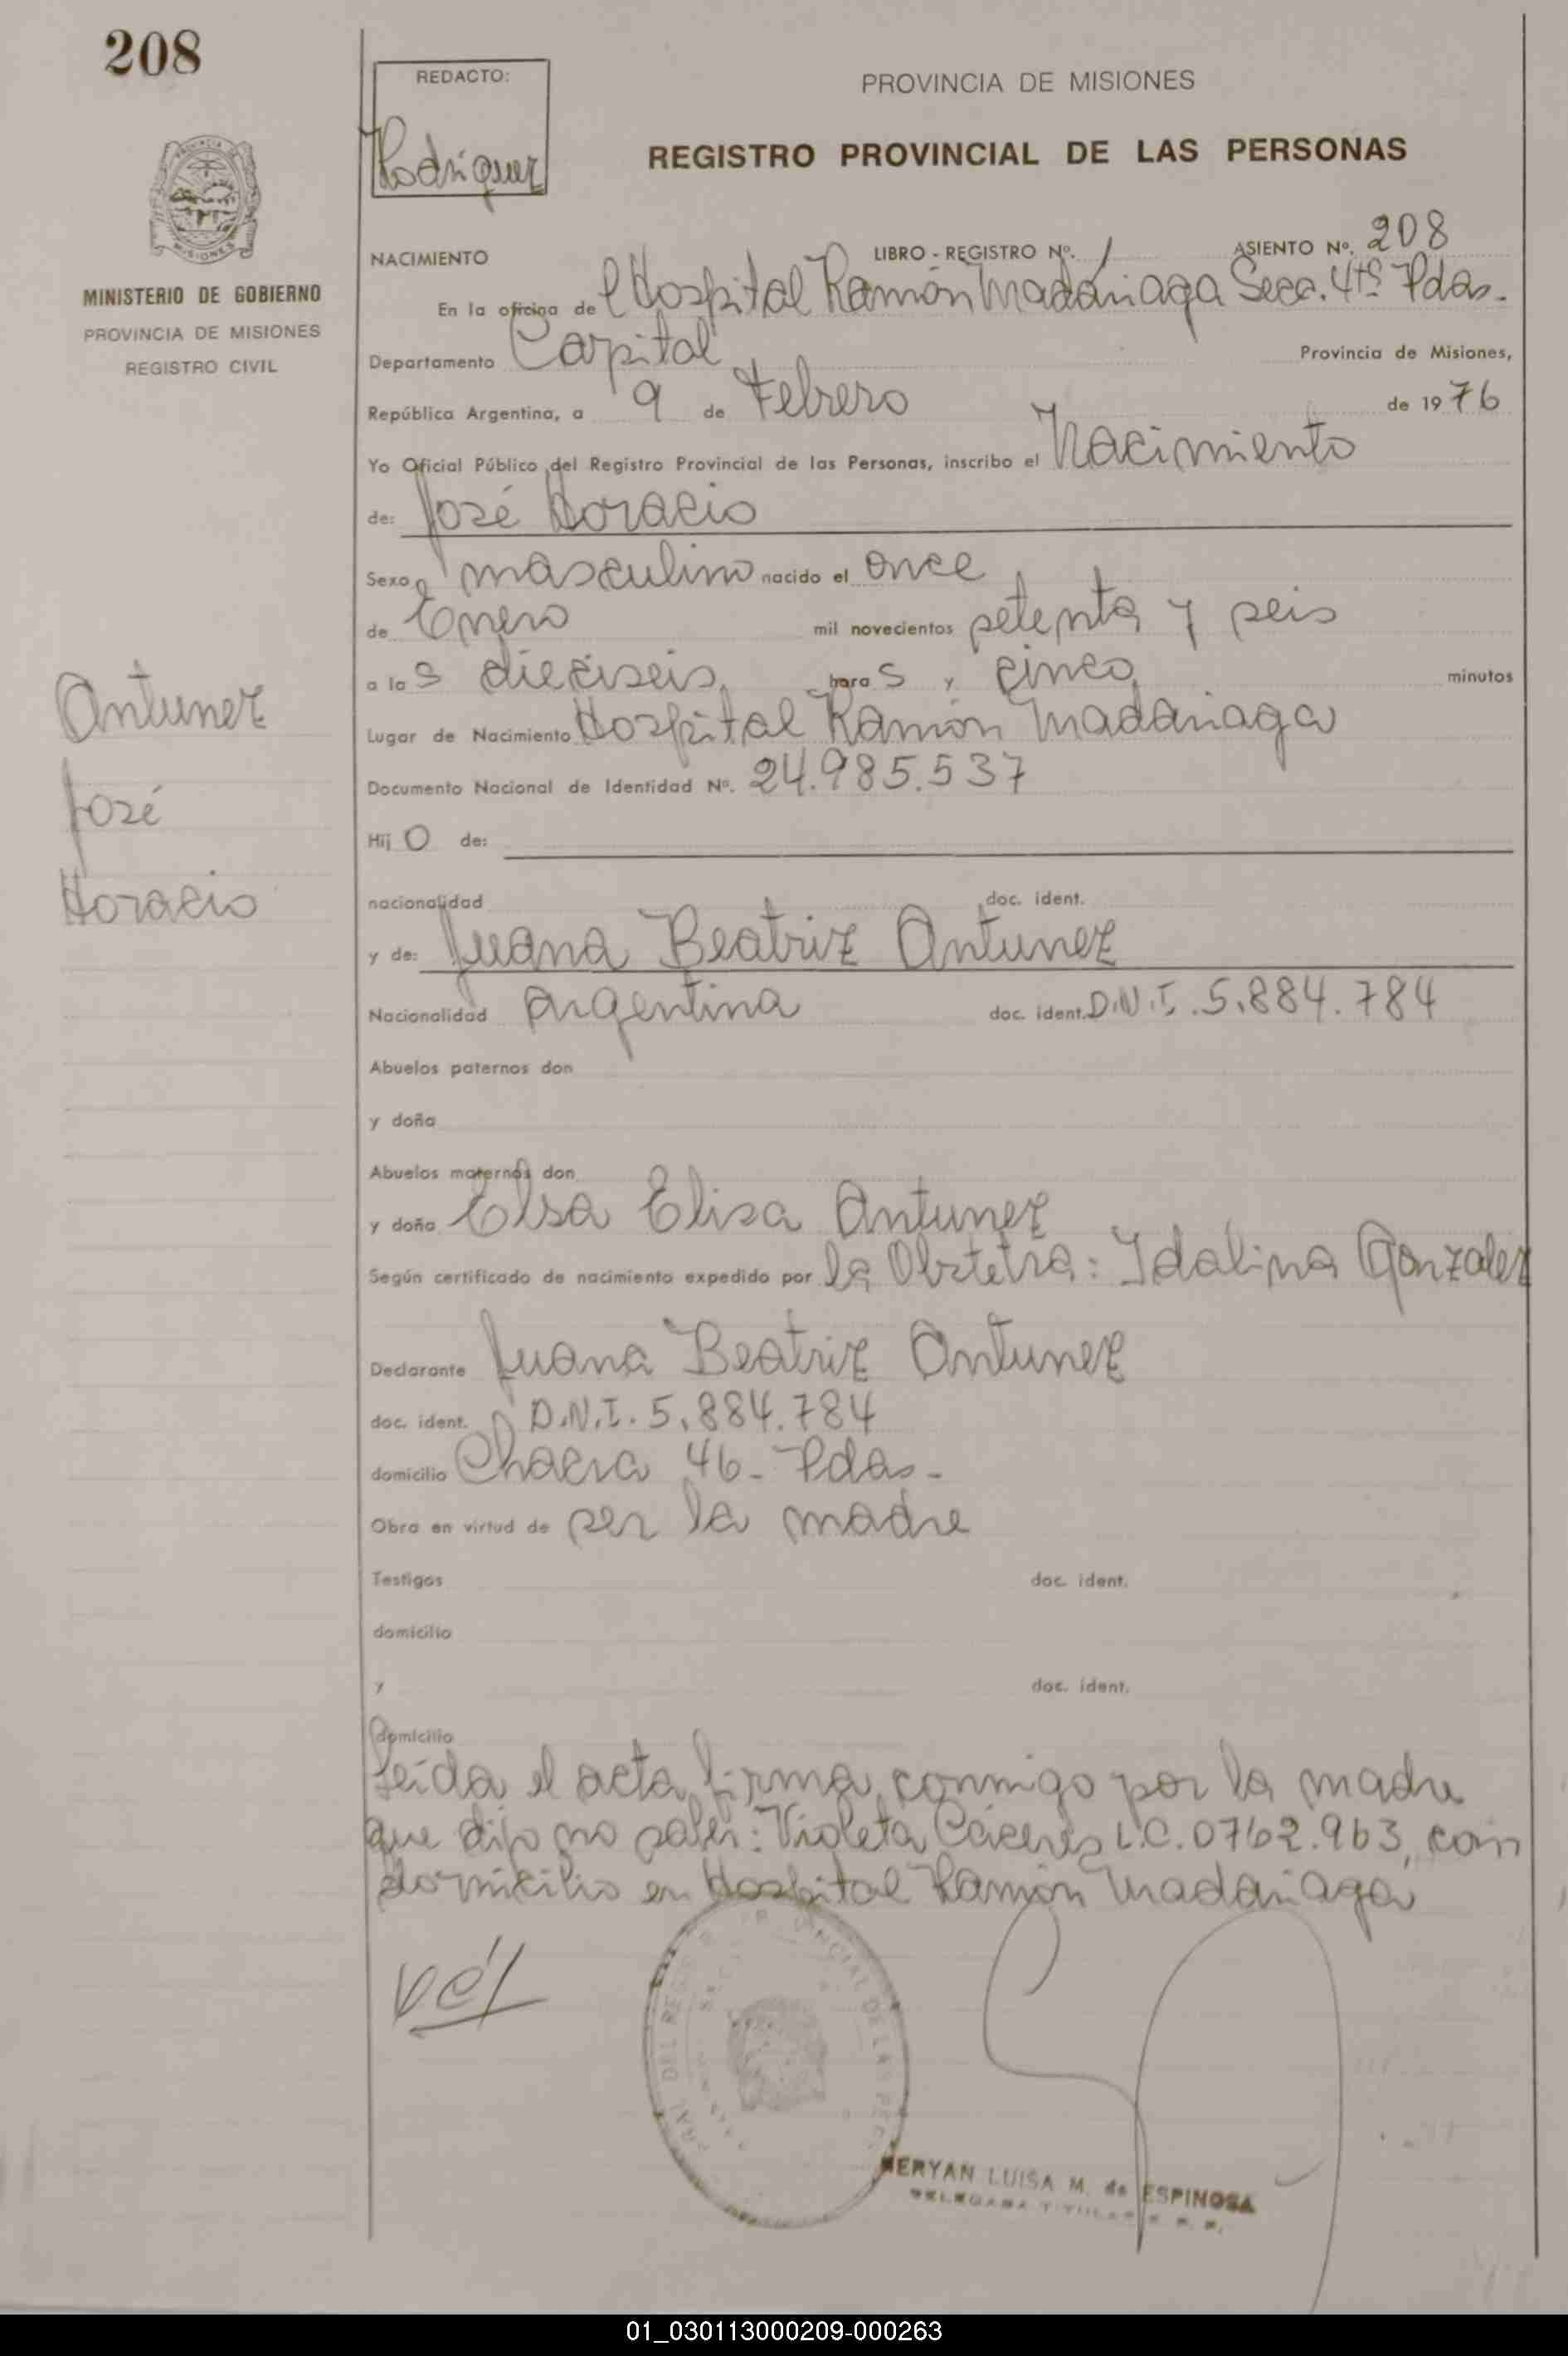 208
REDACTO:
Rodriguez
PROVINCIA DE MISIONES
REGISTRO PROVINCIAL DE LAS PERSONAS
MINISTERIO DE GOBIERNO
PROVINCIA DE MISIONES
REGISTRO CIVIL
NACIMIENTO LIBRO - REGISTRO Nº. 1 ASIENTO Nº. 208
En la oficina de l Hospital Ramón Madariaga Secc. 4ta Pdas.
Departamento Capital Provincia de Misiones,
República Argentina, a 9 de Febrero de 1976
Yo Oficial Público del Registro Provincial de las Personas, inscribo el Nacimiento
de: José Horacio
Sexo masculino nacido el once
de Enero mil novecientos setenta y seis
a las dieciseis horas y cinco minutos
Lugar de Nacimiento Hospital Ramón Madariaga
Documento Nacional de Identidad Nº. 24.985.537
Hijo de:
nacionalidad doc. ident.
y de: Juana Beatriz Antunez
Nacionalidad Argentina doc. ident. D.N.I. 5.884.784
Abuelos paternos don
y doña
Abuelos maternos don
y doña Elsa Elisa Antunez
Según certificado de nacimiento expedido por la Obstetra: Idalina Gonzalez
Declarante Juana Beatriz Antunez
doc. ident. D.N.I. 5.884.784
domicilio Chacra 46- Pdas-
Obra en virtud de ser la madre
Testigos doc. ident.
domicilio
y doc. ident.
domicilio
Leída el acta, firma conmigo por la madre
que dijo no saber: Violeta Cáceres L.C. 0762.963, con
domicilio en Hospital Ramón Madariaga
Antunez
José
Horacio
MERYAN LUISA M. de ESPINOSA
DELEGADA TITULAR
01_030113000209-000263